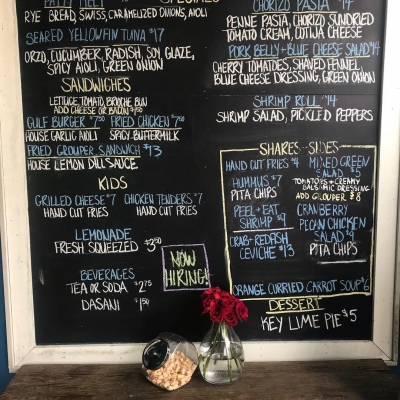 SPECIALS
PATTY MELT
RYE BREAD, SWISS, CARAMELIZED ONIONS, AIOLI
SEARED YELLOWFIN TUNA $17
ORZO, CUCUMBER, RADISH, SOY, GLAZE,
SPICY AIOLI, GREEN ONION
SANDWICHES
LETTUCE, TOMATO, BRIOCHE BUN
ADD CHEESE OR BACON $1.50
GULF BURGER $7.50 FRIED CHICKEN $7.50
HOUSE GARLIC AIOLI SPICY BUTTERMILK
FRIED GROUPER SANDWICH $13
HOUSE LEMON DILL SAUCE
KIDS
GRILLED CHEESE $7 CHICKEN TENDERS $7
HAND CUT FRIES HAND CUT FRIES
LEMONADE
FRESH SQUEEZED $3.50
BEVERAGES
TEA OR SODA $2.75
DASANI $1.50
NOW
HIRING!
CHORIZO PASTA $14
PENNE PASTA, CHORIZO, SUNDRIED
TOMATO CREAM, COTIJA CHEESE
PORK BELLY + BLUE CHEESE SALAD $14
CHERRY TOMATOES, SHAVED FENNEL,
BLUE CHEESE DRESSING, GREEN ONION
SHRIMP ROLL $14
SHRIMP SALAD, PICKLED PEPPERS
SHARES - SIDES
HAND CUT FRIES $4
HUMMUS $7
PITA CHIPS
PEEL + EAT
SHRIMP $9
CRAB + REDFISH
CEVICHE $13
MIXED GREEN
SALAD $5
TOMATOES + CREAMY
BALSAMIC DRESSING
ADD GROUPER $8
CRANBERRY
PECAN CHICKEN
SALAD $9
PITA CHIPS
ORANGE CURRIED CARROT SOUP $6
DESSERT
KEY LIME PIE $5